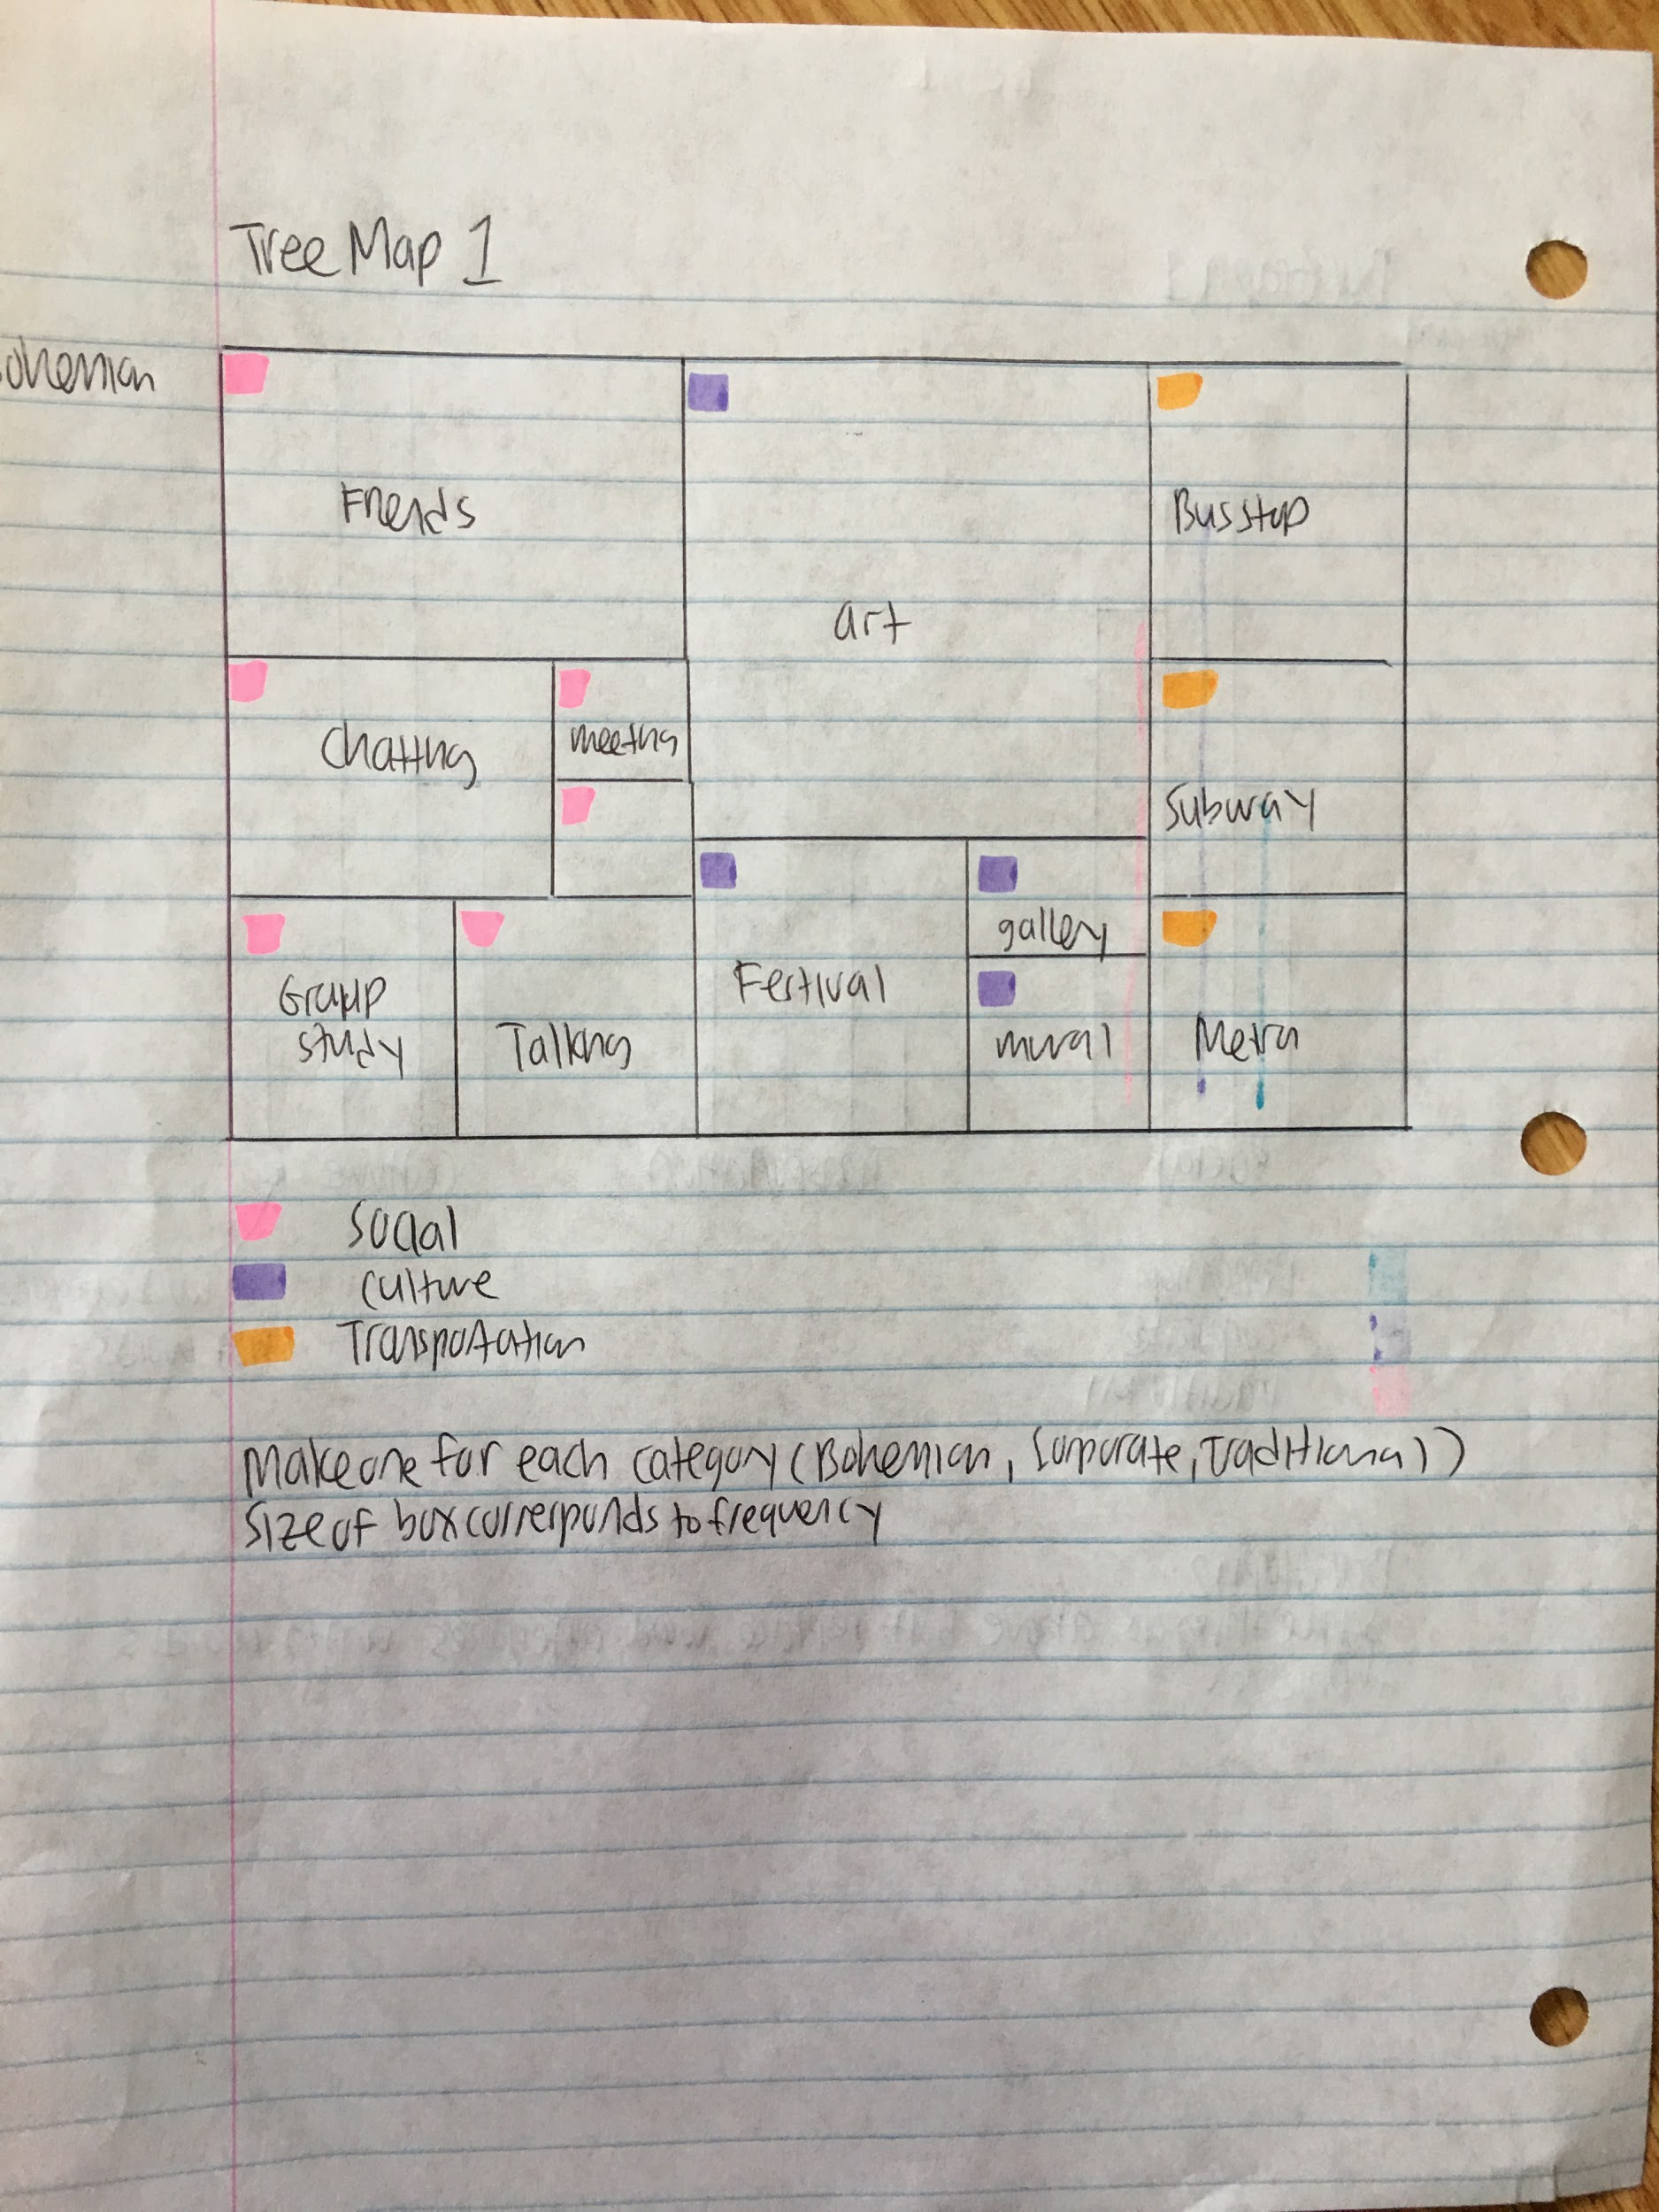 Tree Map 1
ohemian
Friends
art
Bus stop
Chatting
meeting
Subway
gallery
Group
study
Talking
Festival
mural
Metra
Social
culture
Transportation
Make one for each category (Bohemian, Corporate, Traditional)
Size of box corresponds to frequency